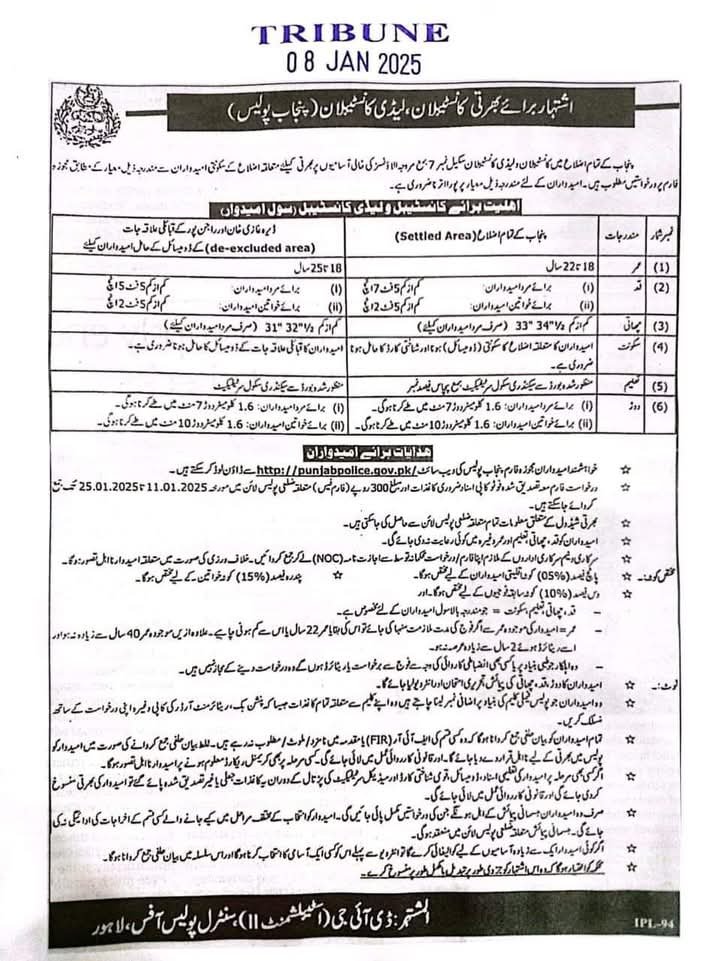 TRIBUNE
08 JAN 2025
اشتہار برائے بھرتی کانسٹیبلان، لیڈی کانسٹیبلان (پنجاب پولیس)
پنجاب کے تمام اضلاع میں کانسٹیبلان و لیڈی کانسٹیبلان سکیل نمبر 7 بمع مروجہ الاؤنسز کی خالی آسامیوں پر بھرتی کیلئے متعلقہ اضلاع کے سکونتی امیدواران سے مندرجہ ذیل معیار کے مطابق مجوزہ
فارم پر درخواستیں مطلوب ہیں۔ امیدواران کے لئے مندرجہ ذیل معیار پر پورا اترنا ضروری ہے۔
اہلیت برائے کانسٹیبل و لیڈی کانسٹیبل (سول امیدوار)
نمبر شمار مندرجات پنجاب کے تمام اضلاع (Settled Area) ڈیرہ غازی خان اور راجن پور کے قبائلی علاقہ جات
(de-excluded area) کے ڈومیسائل کے حامل امیدواران کیلئے
(1) عمر 18 تا 22 سال 18 تا 25 سال
(2) قد (i) برائے مرد امیدواران: کم از کم 5 فٹ 7 انچ (i) برائے مرد امیدواران: کم از کم 5 فٹ 5 انچ
(ii) برائے خواتین امیدواران: کم از کم 5 فٹ 2 انچ (ii) برائے خواتین امیدواران: کم از کم 5 فٹ 2 انچ
(3) چھاتی کم از کم 33" 34½" (صرف مرد امیدواران کیلئے) کم از کم 31" 32½" (صرف مرد امیدواران کیلئے)
(4) سکونت امیدواران کا متعلقہ اضلاع کا سکونتی (ڈومیسائل) ہونا اور شناختی کارڈ کا حامل ہونا امیدواران کا قبائلی علاقہ جات کے ڈومیسائل کا حامل ہونا ضروری ہے۔
ضروری ہے۔
(5) تعلیم منظور شدہ بورڈ سے سیکنڈری سکول سرٹیفکیٹ بمع پچاس فیصد نمبر منظور شدہ بورڈ سے سیکنڈری سکول سرٹیفکیٹ
(6) دوڑ (i) برائے مرد امیدواران: 1.6 کلومیٹر دوڑ 7 منٹ میں طے کرنا ہوگی۔ (i) برائے مرد امیدواران: 1.6 کلومیٹر دوڑ 7 منٹ میں طے کرنا ہوگی۔
(ii) برائے خواتین امیدواران: 1.6 کلومیٹر دوڑ 10 منٹ میں طے کرنا ہوگی۔ (ii) برائے خواتین امیدواران: 1.6 کلومیٹر دوڑ 10 منٹ میں طے کرنا ہوگی۔
ہدایات برائے امیدواران
خواہشمند امیدواران مجوزہ فارم پنجاب پولیس کی ویب سائٹ http://punjabpolice.gov.pk/ سے ڈاؤن لوڈ کر سکتے ہیں۔
درخواست فارم معہ تصدیق شدہ فوٹو کاپی اسناد ضروری کاغذات اور مبلغ 300 روپے (فارم فیس) متعلقہ ضلعی پولیس لائن میں مورخہ 11.01.2025 تا 25.01.2025 تک جمع
کروائے جا سکتے ہیں۔
بھرتی شیڈول کے متعلق معلومات تمام متعلقہ ضلعی پولیس لائن سے حاصل کی جا سکتی ہیں۔
امیدواران کو قد، چھاتی، تعلیم اور عمر وغیرہ میں کوئی رعایت نہ دی جائے گی۔
سرکاری و نیم سرکاری اداروں کے ملازم اپنا فارم/درخواست محکمانہ توسط سے اجازت نامہ (NOC) لے کر جمع کروائیں۔ خلاف ورزی کی صورت میں متعلقہ امیدوار نااہل تصور ہوگا۔
مختص کوٹہ:۔ پانچ فیصد (05%) کوٹہ اقلیتی امیدواران کے لیے مختص ہوگا۔ پندرہ فیصد (15%) کوٹہ خواتین کے لیے مختص ہوگا۔
دس فیصد (10%) کوٹہ سابقہ فوجیوں کے لیے مختص ہوگا۔ اور
- قد، چھاتی، تعلیم، سکونت = جو مندرجہ بالا سول امیدواران کے لئے مخصوص ہے۔
- عمر = امیدوار کی موجودہ عمر سے اگر فوج کی مدت ملازمت منہا کی جائے تو اس کی بقایا عمر 22 سال یا اس سے کم ہونی چاہیے۔ علاوہ ازیں موجودہ عمر 40 سال سے زیادہ نہ ہو اور
اسے ریٹائرڈ ہوئے 2 سال سے زیادہ عرصہ نہ ہو۔
- وہ اہلکار جو طبی بنیاد پر یا کسی بھی انضباطی کاروائی کی وجہ سے فوج سے برخواست یا ریٹائرڈ ہوں گے وہ درخواست دینے کے مجاز نہیں ہیں۔
نوٹ:۔ امیدواران کا دوڑ، قد، چھاتی کی پیمائش تحریری امتحان اور انٹرویو لیا جائے گا۔
وہ امیدواران جو پولیس فیملی کلیم کی بنیاد پر اضافی نمبر لینا چاہتے ہیں وہ اپنے کلیم سے متعلقہ تمام کاغذات جیسا کہ پنشن بک، ریٹائرمنٹ آرڈر کی کاپی وغیرہ اپنی درخواست کے ساتھ
منسلک کریں۔
تمام امیدواران کو بیان حلفی جمع کروانا ہوگا کہ وہ کسی قسم کی ایف آئی آر (FIR) یا مقدمہ میں نامزد/ملوث/مطلوب نہ رہے ہیں۔ غلط بیان حلفی جمع کروانے کی صورت میں امیدوار کو
پولیس میں بھرتی کے لیے نااہل قرار دے دیا جائے گا۔ اور قانونی کاروائی عمل میں لائی جائے گی۔ کسی مرحلہ پر بھی کریمنل ریکارڈ معلوم ہونے پر امیدوار نااہل تصور ہوگا۔
اگر کسی بھی مرحلہ پر امیدوار کی تعلیمی اسناد، ڈومیسائل، قومی شناختی کارڈ اور میڈیکل سرٹیفکیٹ کی پڑتال کے دوران یہ کاغذات جعلی یا غیر تصدیق شدہ پائے گئے تو امیدوار کی بھرتی منسوخ
کر دی جائے گی اور قانونی کاروائی عمل میں لائی جائے گی۔
صرف وہ امیدواران جسمانی پیمائش کے اہل ہونگے جن کی درخواستیں مکمل پائی جائیں گی۔ امیدوار کو انتخاب کے مختلف مراحل میں کیے جانے والے کسی قسم کے اخراجات کی ادائیگی نہ کی
جائے گی۔ جسمانی پیمائش متعلقہ ضلعی پولیس لائن میں منعقد ہوگی۔
اگر کوئی امیدوار ایک سے زیادہ آسامیوں کے لیے کوالیفائی کرے گا تو انٹرویو سے پہلے اس کو کسی ایک آسامی کا انتخاب کرنا ہوگا اور اس سلسلہ میں بیان حلفی جمع کروانا ہوگا۔
محکمہ کو اختیار ہوگا کہ وہ اس اشتہار کو جزوی طور پر تبدیل یا مکمل طور پر منسوخ کر دے۔
المشتہر: ڈی آئی جی (اسٹیبلشمنٹ II) سنٹرل پولیس آفس، لاہور
IPL-94